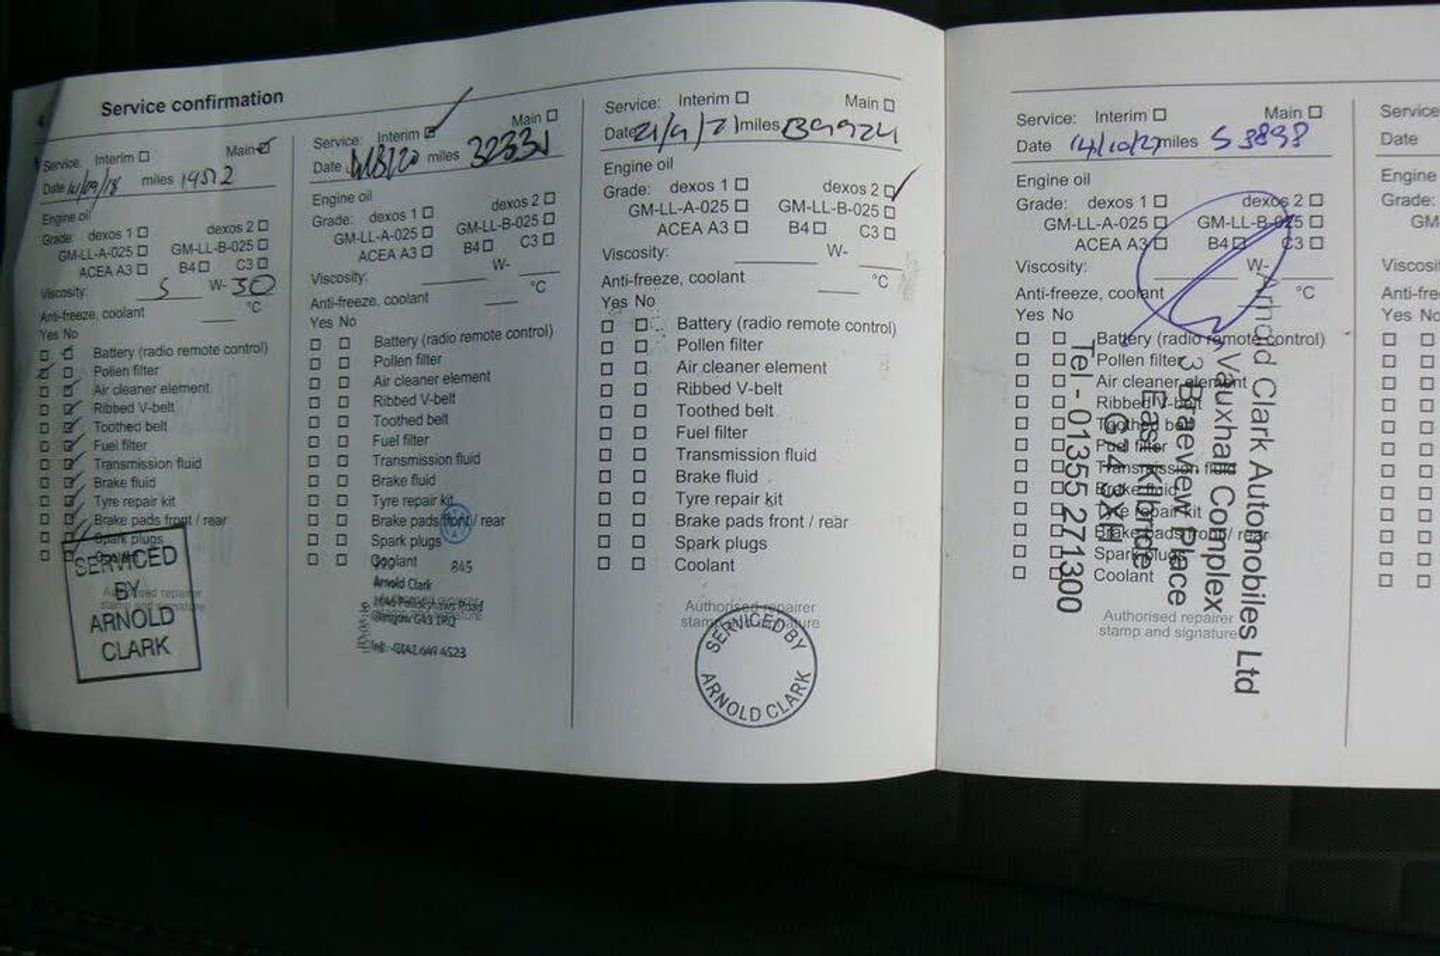 Service confirmation
Service: Interim Main
Date 14/09/18 miles 19512
Engine oil
Grade: dexos 1 dexos 2
GM-LL-A-025 GM-LL-B-025
ACEA A3 B4 C3
Viscosity: 5 W- 30
Anti-freeze, coolant °C
Yes No
Battery (radio remote control)
Pollen filter
Air cleaner element
Ribbed V-belt
Toothed belt
Fuel filter
Transmission fluid
Brake fluid
Tyre repair kit
Brake pads front / rear
Spark plugs
Coolant
Authorised repairer
stamp and signature
SERVICED
BY
ARNOLD
CLARK
Service: Interim Main
Date miles
Engine oil
Grade: dexos 1 dexos 2
GM-LL-A-025 GM-LL-B-025
ACEA A3 B4 C3
Viscosity: W-
Anti-freeze, coolant °C
Yes No
Battery (radio remote control)
Pollen filter
Air cleaner element
Ribbed V-belt
Toothed belt
Fuel filter
Transmission fluid
Brake fluid
Tyre repair kit
Brake pads front / rear
Spark plugs
Coolant 845
Arnold Clark
Road
Glasgow G43 1RQ
Tel:-0141 649 4523
Service: Interim Main
Date 21/9/21 miles 39924
Engine oil
Grade: dexos 1 dexos 2
GM-LL-A-025 GM-LL-B-025
ACEA A3 B4 C3
Viscosity: W-
Anti-freeze, coolant °C
Yes No
Battery (radio remote control)
Pollen filter
Air cleaner element
Ribbed V-belt
Toothed belt
Fuel filter
Transmission fluid
Brake fluid
Tyre repair kit
Brake pads front / rear
Spark plugs
Coolant
Authorised repairer
stamp and signature
SERVICED BY
ARNOLD CLARK
Service: Interim Main
Date 14/10/22 miles 53898
Engine oil
Grade: dexos 1 dexos 2
GM-LL-A-025 GM-LL-B-025
ACEA A3 B4 C3
Viscosity: W-
Anti-freeze, coolant °C
Yes No
Battery (radio remote control)
Pollen filter
Air cleaner element
Ribbed V-belt
Toothed belt
Fuel filter
Transmission fluid
Brake fluid
Tyre repair kit
Brake pads front / rear
Spark plugs
Coolant
Authorised repairer
stamp and signature
Arnold Clark Automobiles Ltd
Vauxhall Complex
3 Braeview Place
East Kilbride
G74 3XE
Tel - 01355 271300
Service
Date
Engine
Grade:
GM-
Viscosi
Anti-fre
Yes No